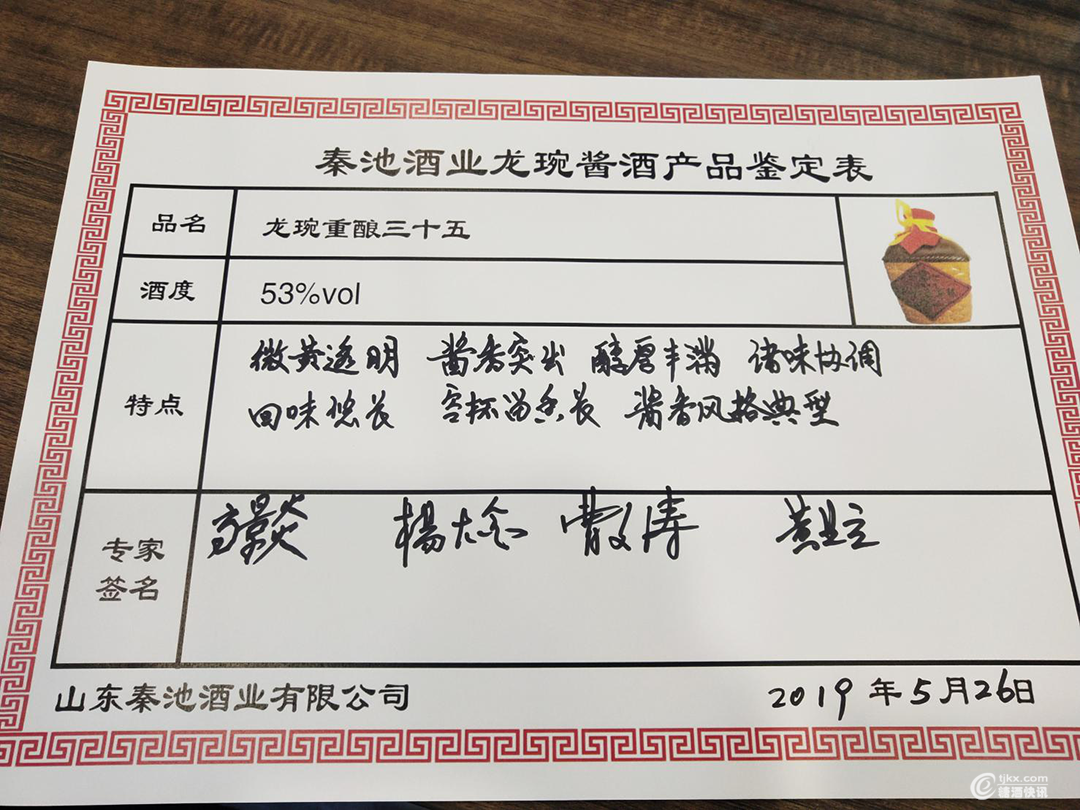 秦池酒业龙琬酱酒产品鉴定表
品名
龙琬重酿三十五
酒度
53%vol
特点
微黄透明 酱香突出 醇厚丰满 诸味协调
回味悠长 空杯留香长 酱香风格典型
专家
签名
山东秦池酒业有限公司
2019年5月26日
tjkx.com
糖酒快讯